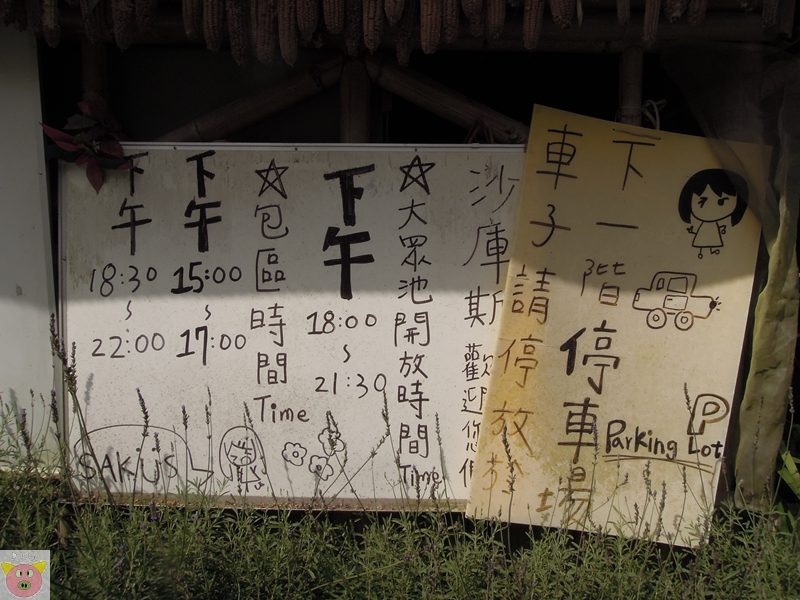 沙庫斯歡迎您們
☆大眾池開放時間Time
下午
18:00
~
21:30
☆包區時間Time
下午
15:00
~
17:00
下午
18:30
~
22:00
SAKÜS
車子請停放於
下一階停車場
P
Parking Lot